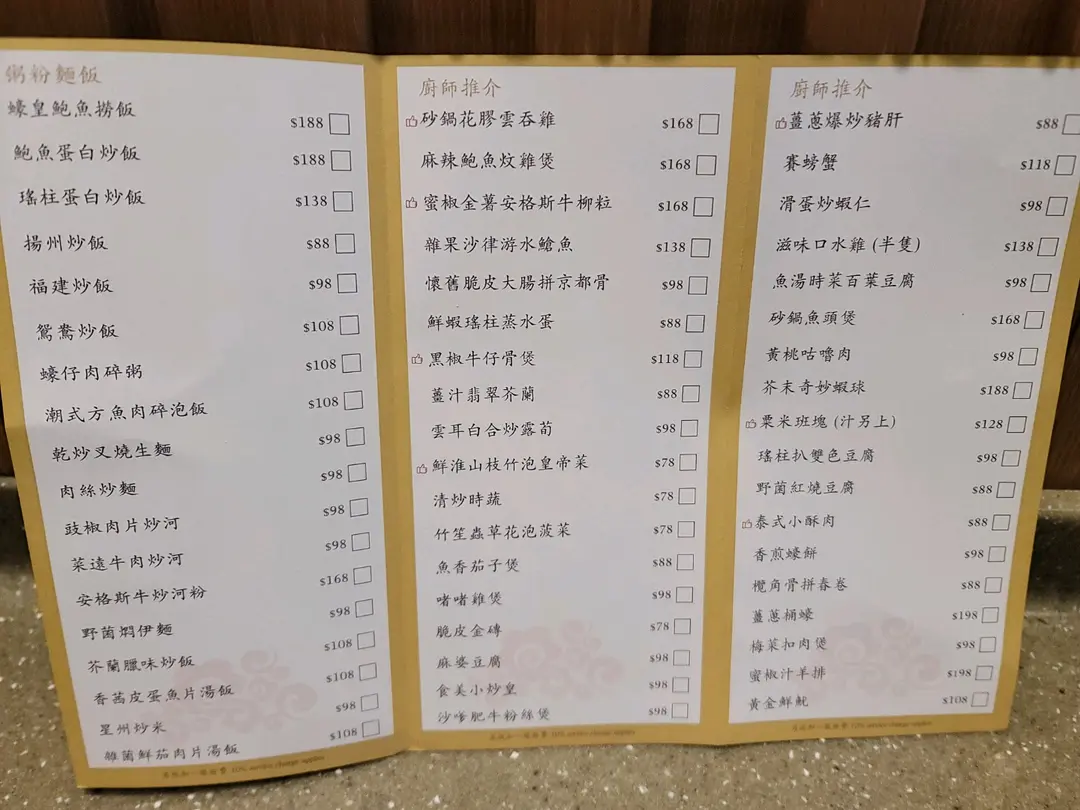 粥粉麵飯
蠔皇鮑魚撈飯 $188
鮑魚蛋白炒飯 $188
瑤柱蛋白炒飯 $138
揚州炒飯 $88
福建炒飯 $98
鴛鴦炒飯 $108
蠔仔肉碎粥 $108
潮式方魚肉碎泡飯 $108
乾炒叉燒生麵 $98
肉絲炒麵 $98
豉椒肉片炒河 $98
菜遠牛肉炒河 $98
安格斯牛炒河粉 $168
野菌燜伊麵 $98
芥蘭臘味炒飯 $108
香茜皮蛋魚片湯飯 $108
星州炒米 $98
雜菌鮮茄肉片湯飯 $108
另收加一服務費 10% service charge applies
廚師推介
砂鍋花膠雲吞雞 $168
麻辣鮑魚炆雞煲 $168
蜜椒金薯安格斯牛柳粒 $168
雜果沙律游水鎗魚 $138
懷舊脆皮大腸拼京都骨 $98
鮮蝦瑤柱蒸水蛋 $88
黑椒牛仔骨煲 $118
薑汁翡翠芥蘭 $88
雲耳白合炒露荀 $98
鮮淮山枝竹泡皇帝菜 $78
清炒時蔬 $78
竹笙蟲草花泡菠菜 $78
魚香茄子煲 $88
啫啫雞煲 $98
脆皮金磚 $78
麻婆豆腐 $98
食美小炒皇 $98
沙嗲肥牛粉絲煲 $98
另收加一服務費 10% service charge applies
廚師推介
薑蔥爆炒豬肝 $88
賽螃蟹 $118
滑蛋炒蝦仁 $98
滋味口水雞 (半隻) $138
魚湯時菜百葉豆腐 $98
砂鍋魚頭煲 $168
黃桃咕嚕肉 $98
芥末奇妙蝦球 $188
粟米班塊 (汁另上) $128
瑤柱扒雙色豆腐 $98
野菌紅燒豆腐 $88
泰式小酥肉 $88
香煎蠔餅 $98
欖角骨拼春卷 $88
薑蔥桶蠔 $198
梅菜扣肉煲 $98
蜜椒汁羊排 $198
黃金鮮魷 $108
另收加一服務費 10% service charge applies